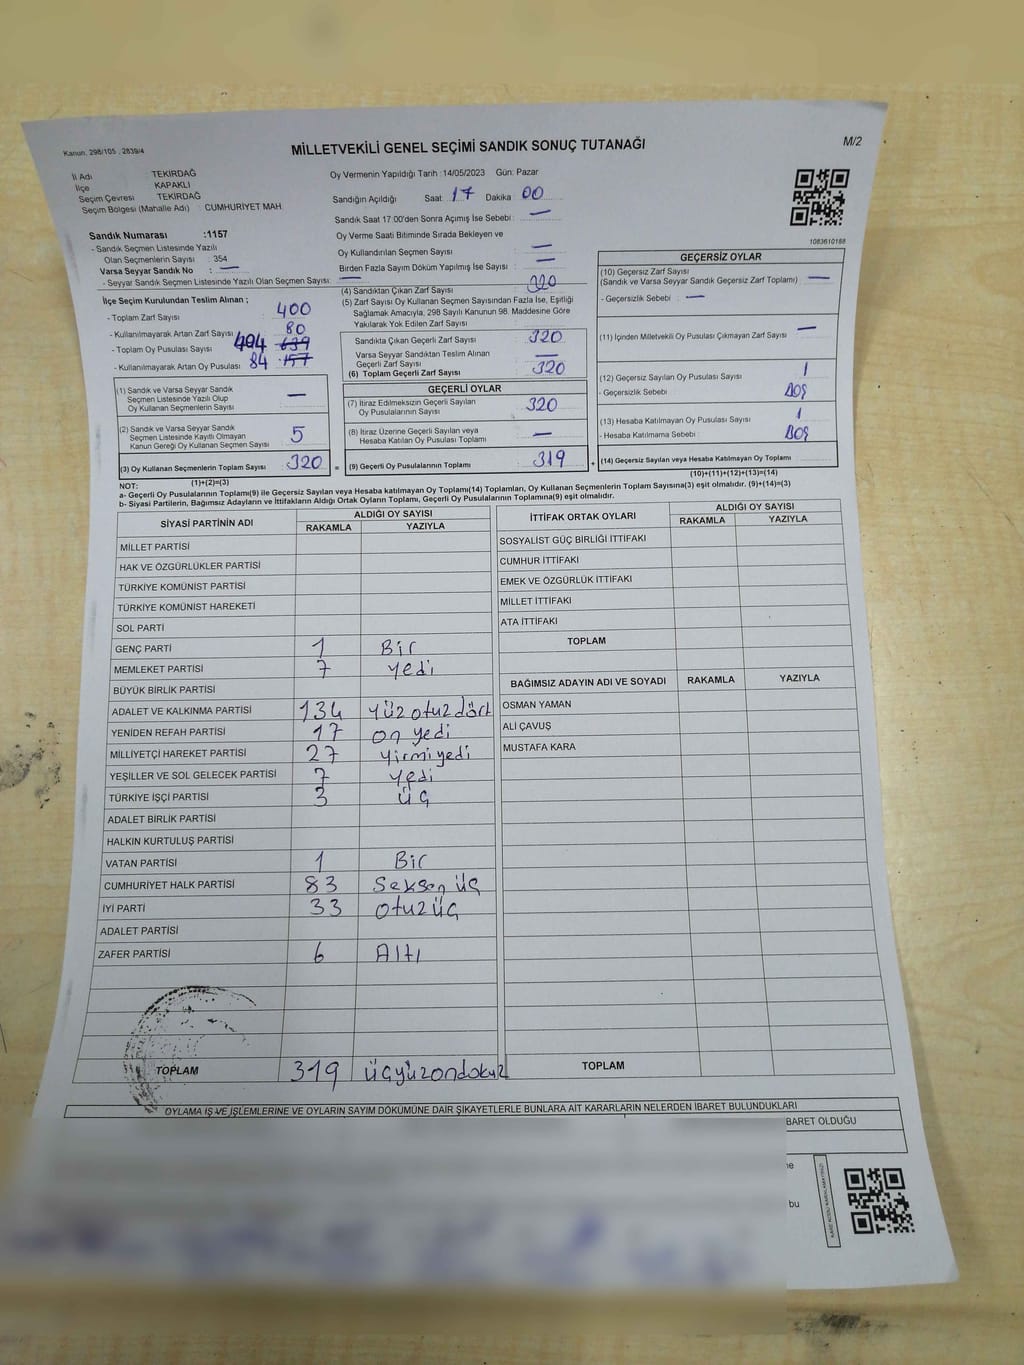 Kanun, 298/105, 2839/4
MİLLETVEKİLİ GENEL SEÇİMİ SANDIK SONUÇ TUTANAĞI
M/2
İl Adı TEKİRDAĞ
İlçe KAPAKLI
Seçim Çevresi TEKİRDAĞ
Seçim Bölgesi (Mahalle Adı) : CUMHURİYET MAH.
Sandık Numarası :1157
- Sandık Seçmen Listesinde Yazılı
Olan Seçmenlerin Sayısı : 354
Varsa Seyyar Sandık No : —
- Seyyar Sandık Seçmen Listesinde Yazılı Olan Seçmen Sayısı: —
Oy Vermenin Yapıldığı Tarih :14/05/2023 Gün: Pazar
Sandığın Açıldığı Saat 17 Dakika 00
Sandık Saat 17:00'den Sonra Açımış İse Sebebi : —
Oy Verme Saati Bitiminde Sırada Bekleyen ve
Oy Kullandırılan Seçmen Sayısı : —
Birden Fazla Sayım Döküm Yapılmış İse Sayısı : —
1083610188
İlçe Seçim Kurulundan Teslim Alınan ;
- Toplam Zarf Sayısı 400
- Kullanılmayarak Artan Zarf Sayısı 80
- Toplam Oy Pusulası Sayısı 404 639
- Kullanılmayarak Artan Oy Pusulası 84 157
(1) Sandık ve Varsa Seyyar Sandık
Seçmen Listesinde Yazılı Olup
Oy Kullanan Seçmenlerin Sayısı —
(2) Sandık ve Varsa Seyyar Sandık
Seçmen Listesinde Kayıtlı Olmayan
Kanun Gereği Oy Kullanan Seçmen Sayısı 5
(3) Oy Kullanan Seçmenlerin Toplam Sayısı 320 =
(1)+(2)=(3)
(4) Sandıktan Çıkan Zarf Sayısı 320
(5) Zarf Sayısı Oy Kullanan Seçmen Sayısından Fazla İse, Eşitliği
Sağlamak Amacıyla, 298 Sayılı Kanunun 98. Maddesine Göre
Yakılarak Yok Edilen Zarf Sayısı
Sandıkta Çıkan Geçerli Zarf Sayısı 320
Varsa Seyyar Sandıktan Teslim Alınan
Geçerli Zarf Sayısı —
(6) Toplam Geçerli Zarf Sayısı 320
GEÇERLİ OYLAR
(7) İtiraz Edilmeksizin Geçerli Sayılan
Oy Pusulalarının Sayısı 320
(8) İtiraz Üzerine Geçerli Sayılan veya
Hesaba Katılan Oy Pusulası Toplamı —
(9) Geçerli Oy Pusulalarının Toplamı 319 +
GEÇERSİZ OYLAR
(10) Geçersiz Zarf Sayısı
(Sandık ve Varsa Seyyar Sandık Geçersiz Zarf Toplamı) —
- Geçersizlik Sebebi : —
(11) İçinden Milletvekili Oy Pusulası Çıkmayan Zarf Sayısı —
(12) Geçersiz Sayılan Oy Pusulası Sayısı 1
- Geçersizlik Sebebi Boş
(13) Hesaba Katılmayan Oy Pusulası Sayısı 1
- Hesaba Katılmama Sebebi Boş
(14) Geçersiz Sayılan veya Hesaba Katılmayan Oy Toplamı
(10)+(11)+(12)+(13)=(14)
NOT:
a- Geçerli Oy Pusulalarının Toplamı(9) ile Geçersiz Sayılan veya Hesaba katılmayan Oy Toplamı(14) Toplamları, Oy Kullanan Seçmenlerin Toplam Sayısına(3) eşit olmalıdır. (9)+(14)=(3)
b- Siyasi Partilerin, Bağımsız Adayların ve İttifakların Aldığı Ortak Oyların Toplamı, Geçerli Oy Pusulalarının Toplamına(9) eşit olmalıdır.
SİYASİ PARTİNİN ADI ALDIĞI OY SAYISI
RAKAMLA YAZIYLA
MİLLET PARTİSİ
HAK VE ÖZGÜRLÜKLER PARTİSİ
TÜRKİYE KOMÜNİST PARTİSİ
TÜRKİYE KOMÜNİST HAREKETİ
SOL PARTİ
GENÇ PARTİ 1 Bir
MEMLEKET PARTİSİ 7 yedi
BÜYÜK BİRLİK PARTİSİ
ADALET VE KALKINMA PARTİSİ 134 yüz otuz dört
YENİDEN REFAH PARTİSİ 17 on yedi
MİLLİYETÇİ HAREKET PARTİSİ 27 yirmi yedi
YEŞİLLER VE SOL GELECEK PARTİSİ 7 yedi
TÜRKİYE İŞÇİ PARTİSİ 3 üç
ADALET BİRLİK PARTİSİ
HALKIN KURTULUŞ PARTİSİ
VATAN PARTİSİ 1 Bir
CUMHURİYET HALK PARTİSİ 83 Seksen üç
İYİ PARTİ 33 otuz üç
ADALET PARTİSİ
ZAFER PARTİSİ 6 Altı
TOPLAM 319 üçyüzondokuz
İTTİFAK ORTAK OYLARI ALDIĞI OY SAYISI
RAKAMLA YAZIYLA
SOSYALİST GÜÇ BİRLİĞİ İTTİFAKI
CUMHUR İTTİFAKI
EMEK VE ÖZGÜRLÜK İTTİFAKI
MİLLET İTTİFAKI
ATA İTTİFAKI
TOPLAM
BAĞIMSIZ ADAYIN ADI VE SOYADI RAKAMLA YAZIYLA
OSMAN YAMAN
ALİ ÇAVUŞ
MUSTAFA KARA
TOPLAM
OYLAMA İŞ VE İŞLEMLERİNE VE OYLARIN SAYIM DÖKÜMÜNE DAİR ŞİKAYETLERLE BUNLARA AİT KARARLARIN NELERDEN İBARET BULUNDUKLARI
BARET OLDUĞU
bu